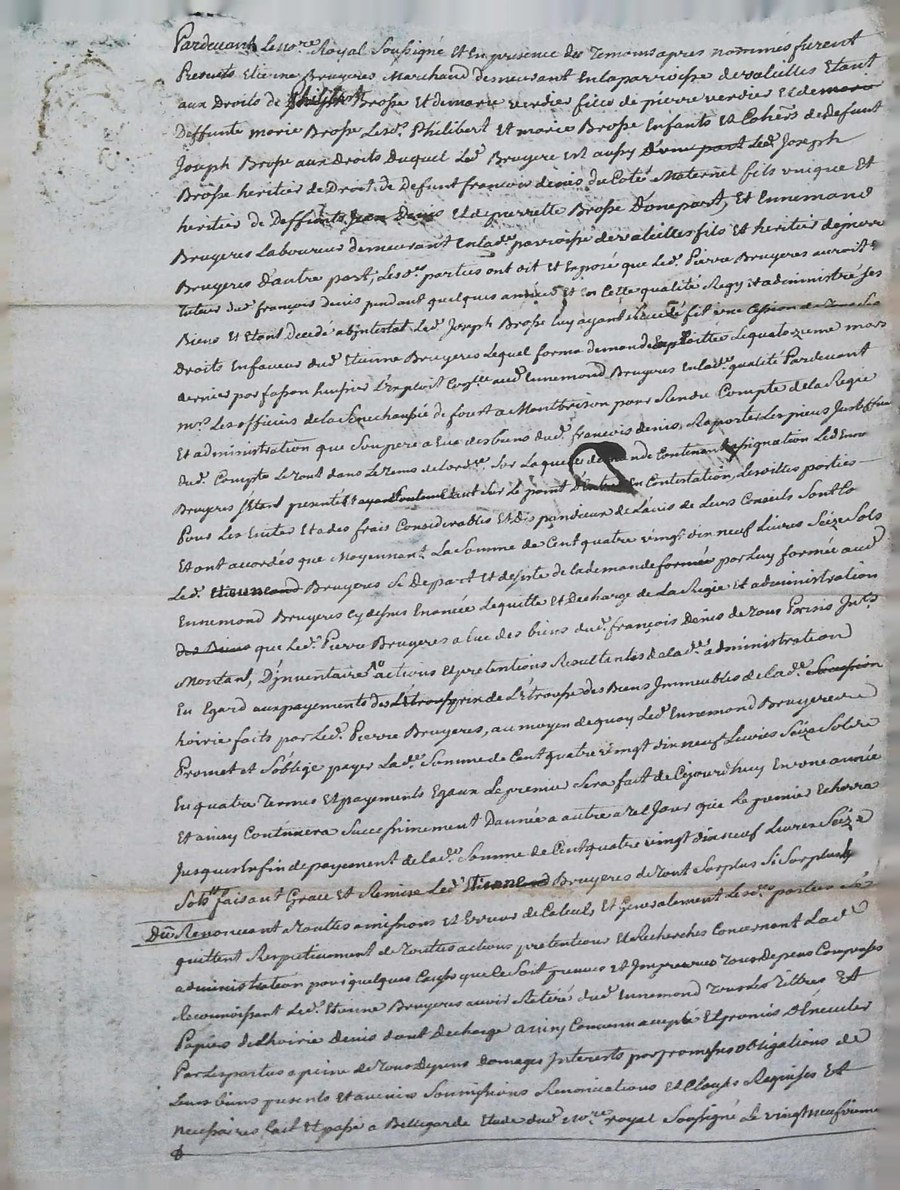 Pardevant Le no.re Royal Soussigné Et En presence des Temoins apres nommés furent
Presents Etienne Bruyeres Marchand demeurant En la parroisse de valeilles Etant
aux Droits de Brosse Et de marie verdier fille de pierre verdier Et de marie
Deffunte marie Brosse Lesd. Philibert Et marie Brosse Enfants Et Cohers de deffunt
Joseph Brosse aux Droits duquel Led. Bruyere Est aussy D'une part Led. Joseph
Brosse heritier de Droit de Defunt francois denis du Coté Maternel fils unique Et
heritier de Deffunts Jean Denis Et de pierrette Brosse D'une part, Et Ennemond
Bruyeres Laboureur demeurant En lad. parroisse de valeilles fils Et heritier de pierre
Bruyeres D'autre part, Lesd. parties ont dit Et Exposé que Led. Pierre Bruyeres auroit Eté
Tuteur dud. françois denis pendant quelques années Et En Cette qualité Regy Et administré ses
Biens Et Etant decedé abintestat Led. Joseph Brosse luy ayant succedé fit une Cession de Tous Ses
Droits En faveur dud. Etienne Bruyeres Lequel forma demande Le quatorzieme mars
dernier par L'Exploit aud. Ennemond Bruyeres En lad. qualité Pardevant
mrs. Les officiers de la Senechaussée de forest a Montbrison pour Rendre Compte de la Regie
Et administration que Son pere a Eue des biens dud. francois denis, Raporter Les pieces Justifficatives
dud. Compte Le Tout dans Le Tems de L'ord.ce Sur Laquelle demande Contenant assignation Led. Enne
Bruyeres s'Etant presenté Et ayant Eté Sur Le point d'Entrer En Contestation, Lesdittes parties
Pour Les Eviter Et a des frais Considerables Et de L'avis de Leurs Conseils Sont Co
Et ont accordés que Moyennant La Somme de Cent quatre vingt dix neuf Livres Seize Sols
Led. Etienne Bruyeres Se Depart Et desiste de la demande formée par Luy formée aud.
Ennemond Bruyeres Cy dessus Enoncée Le quitte Et Decharge de La Regie Et administration
des Biens que Led. Pierre Bruyeres a Eue des biens dud. françois Denis de Tous
Montant, D'jnventaires actions Et pretentions Resultantes de lad. administration
Eu Egard aux payements des de L'Etrousse des Biens Immeubles de lad. Succession
hoirie faits par Led. Pierre Bruyeres, au moyen de quoy Led. Ennemond Bruyeres
Promet et S'oblige payer Lad. Somme de Cent quatre vingt dix neuf Livres Seize Sols
En quatre Termes Et payements Egaux Le premier Sera fait de Cejourd'huy En une année
Et ainsy Continuera Successivement D'année a autre a Tel Jour que Le premier Echerra
Jusques En fin de payement de lad. Somme de Cent quatre vingt dix neuf Livres Seize
Sols faisant Grace Et Remise Led. Etienne Bruyeres de Tout Surplus Si Surplus y
Du Renonceant a Toutes omissions Et Erreur de Calculs Et Generalement Lesd. parties Se
quittent Respectivement de Touttes actions pretentions Et Recherches Concernant Lad.
administration pour quelques Causes que Ce Soit preveues Et Impreveues Tous Depens Compensés
Reconnoissant Led. Etienne Bruyeres avoir Retiré dud. Ennemond Tous Les Tittres Et
Papiers de L'hoirie Denis dont Decharge ainsy Convenu accepté Et promis D'Executer
Par Les parties a peine de Tous Depens Domages Interests par promesses obligations de
Leurs biens presents Et avenirs Soumissions Renonciations Et Clauses Requises Et
necessaires Fait Et passé a Bellegarde Etude dud. no.re royal Soussigné Le vingt neufvieme